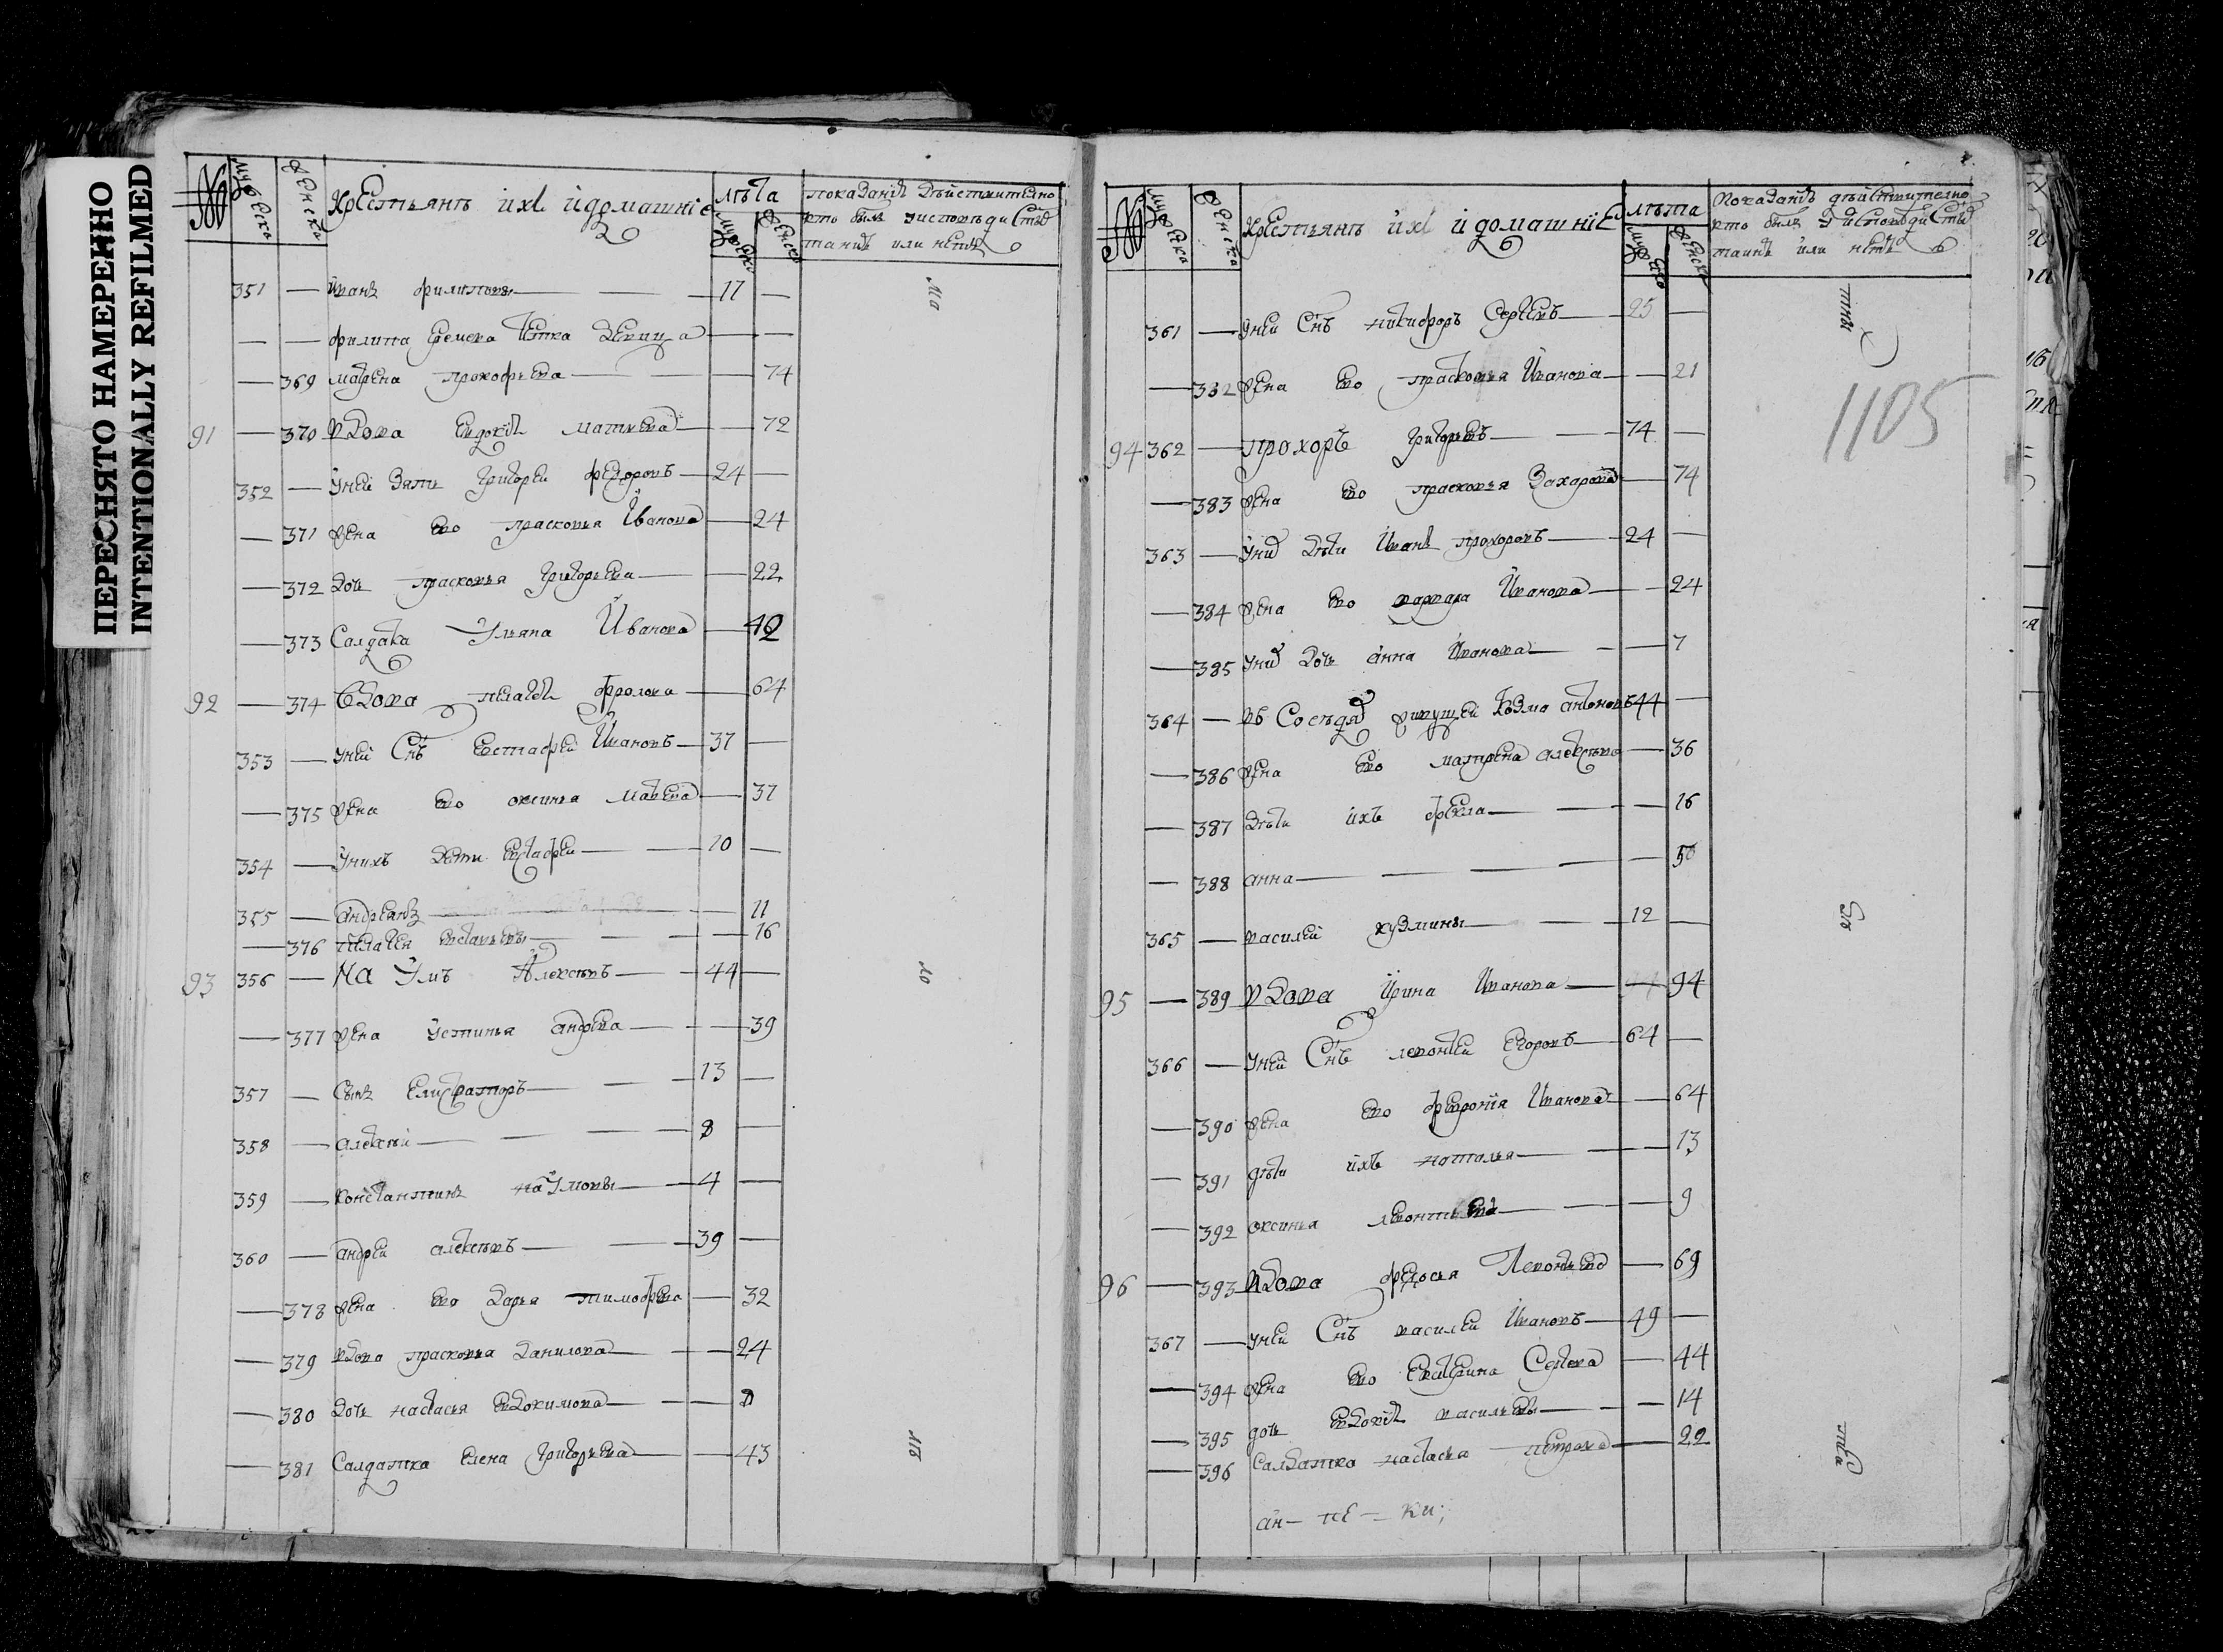 ПЕРЕСНЯТО НАМЕРЕННО
INTENTIONALLY REFILMED
№ мужеска женска крестьянъ ихъ и домашнiе лѣта мужеска женска показанiе дѣйствително
кто былъ у исповѣди
или нетъ
351 — Иванъ филиповы — 17 —
— — филипа тетка — —
— 369 марена прокофьева — 74
91 — 370 вдова Евдокiя матвеева — 72
352 — Унеи зять Григореи федоровъ — 24 —
— 371 жена ево прасковья Иванова — 24
— 372 дочь прасковья Григорьева — 22
— 373 Салдатка Ульяна Иванова — 42
92 — 374 Вдова пелагея фролова — 64
353 — унеи Снъ Евстафеи Ивановъ — 37 —
— 375 жена ево оксинья — 37
354 — Унихъ дети Евстафеи — 10 —
355 — андреанъ — 11
— 376 пелагея — 16
93 356 — На Умъ Алексѣевъ — 44 —
— 377 жена Устинья андреева — 39
357 — Сынъ Елистраторъ — 13 —
358 — алексеи — 8 —
359 — константинъ на Умовы — 4 —
360 — андреи алексѣевъ — 39 —
— 378 жена ево дарья тимофеева — 32
— 379 вдова прасковья данилова — 24
— 380 дочь настасья Евдокимова —
— 381 Салдатка елена Григорьева — 43
№ мужеска женска крестьянъ ихъ и домашнiе лѣта мужеска женска показанiе дѣйствително
кто былъ у исповѣди
или нетъ
361 — унеи Снъ никифоръ Сергеевъ — 25 —
— 382 жена ево прасковья Иванова — 21
1105
94 362 — прохоръ Григорьевъ — 74 —
— 383 жена ево прасковья Захарова — 74
363 — дѣти Иванъ прохоровъ — 24 —
— 384 жена ево варвара Иванова — 24
— 385 дочь анна Иванова — 7
364 — въ Соседяхъ живущеи козма антоновъ 44 —
— 386 жена ево матрена алексѣева — 36
— 387 дѣти ихъ фекла — 16
— 388 анна —
365 — василеи кузмины — 12 —
95 — 389 вдова Ирина Иванова — 94
366 — унеи Снъ леонтеи Егоровъ — 64 —
— 390 жена ево феврония Иванова — 64
— 391 дѣти ихъ наталья — 13
— 392 оксинья леонтьева — 9
96 — 393 вдова федосья Леонтьева — 69
367 — унеи Снъ василеи Ивановъ — 49 —
— 394 жена ево Екатерина Сергеева — 44
— 395 дочь Евдокiя васильевы — 14
— 396 Салдатка настасья петрова — 22